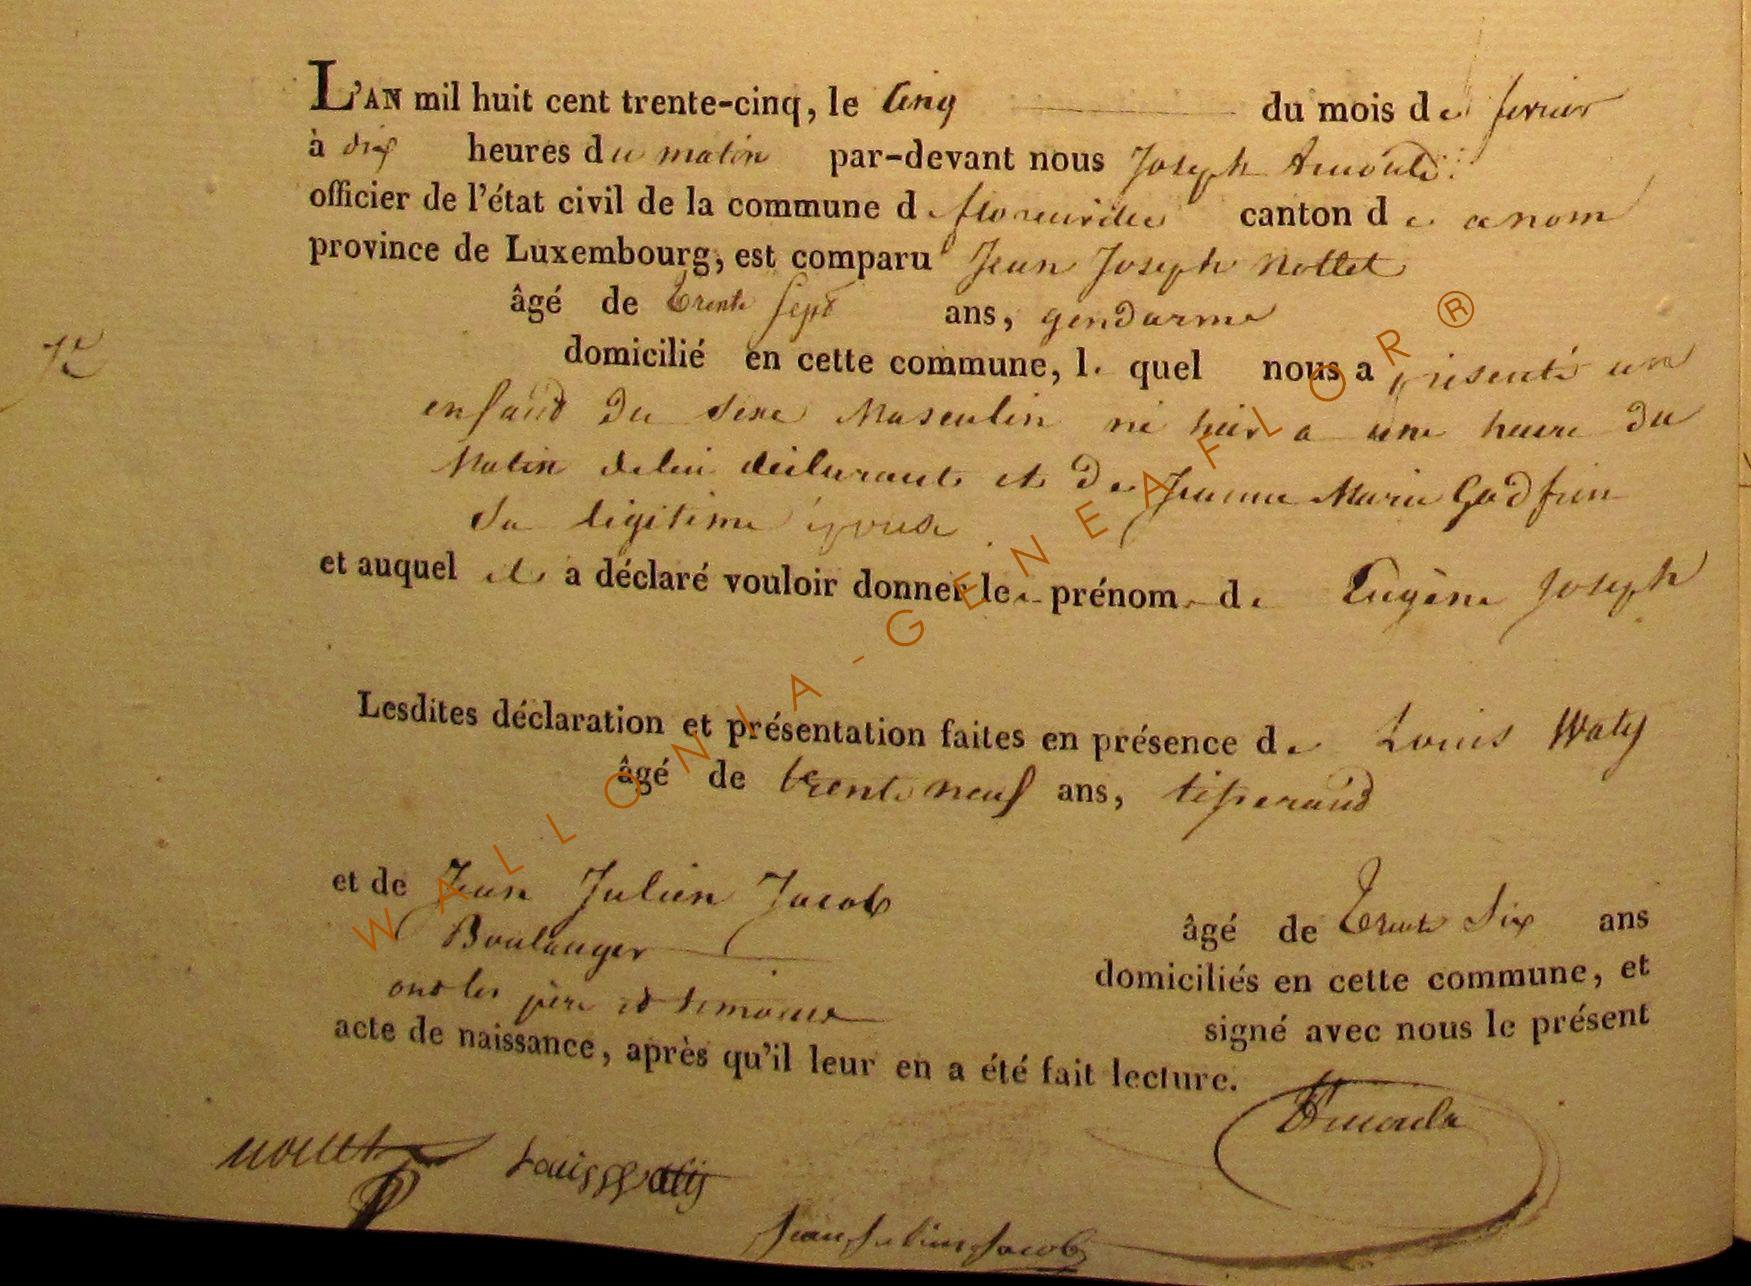 L'AN mil huit cent trente-cinq, le Cinq du mois de fevrier
à dix heures du matin par-devant nous Joseph Arnould
officier de l'état civil de la commune d canton de
province de Luxembourg, est comparu Jean Joseph Nollet
âgé de trente sept ans, gendarme
domicilié en cette commune, l. quel nous a présenté un
12
enfand du sexe Masculin né hier a une heure du
Matin de lui déclarant et de Jeanne Marie Godfrin
sa légitime épouse
et auquel il a déclaré vouloir donner le prénom de Eugène Joseph
Lesdites déclaration et présentation faites en présence de Louis Waty
âgé de trente neuf ans, tisserand
et de Jean Julien Jacob
Boulanger âgé de trente Six ans
domiciliés en cette commune, et
ont les père et temoins signé avec nous le présent
acte de naissance, après qu'il leur en a été fait lecture.
Arnould
Nollet Louis Watij
Jean Julien Jacob
WALLONIA-GENEAFLOR®